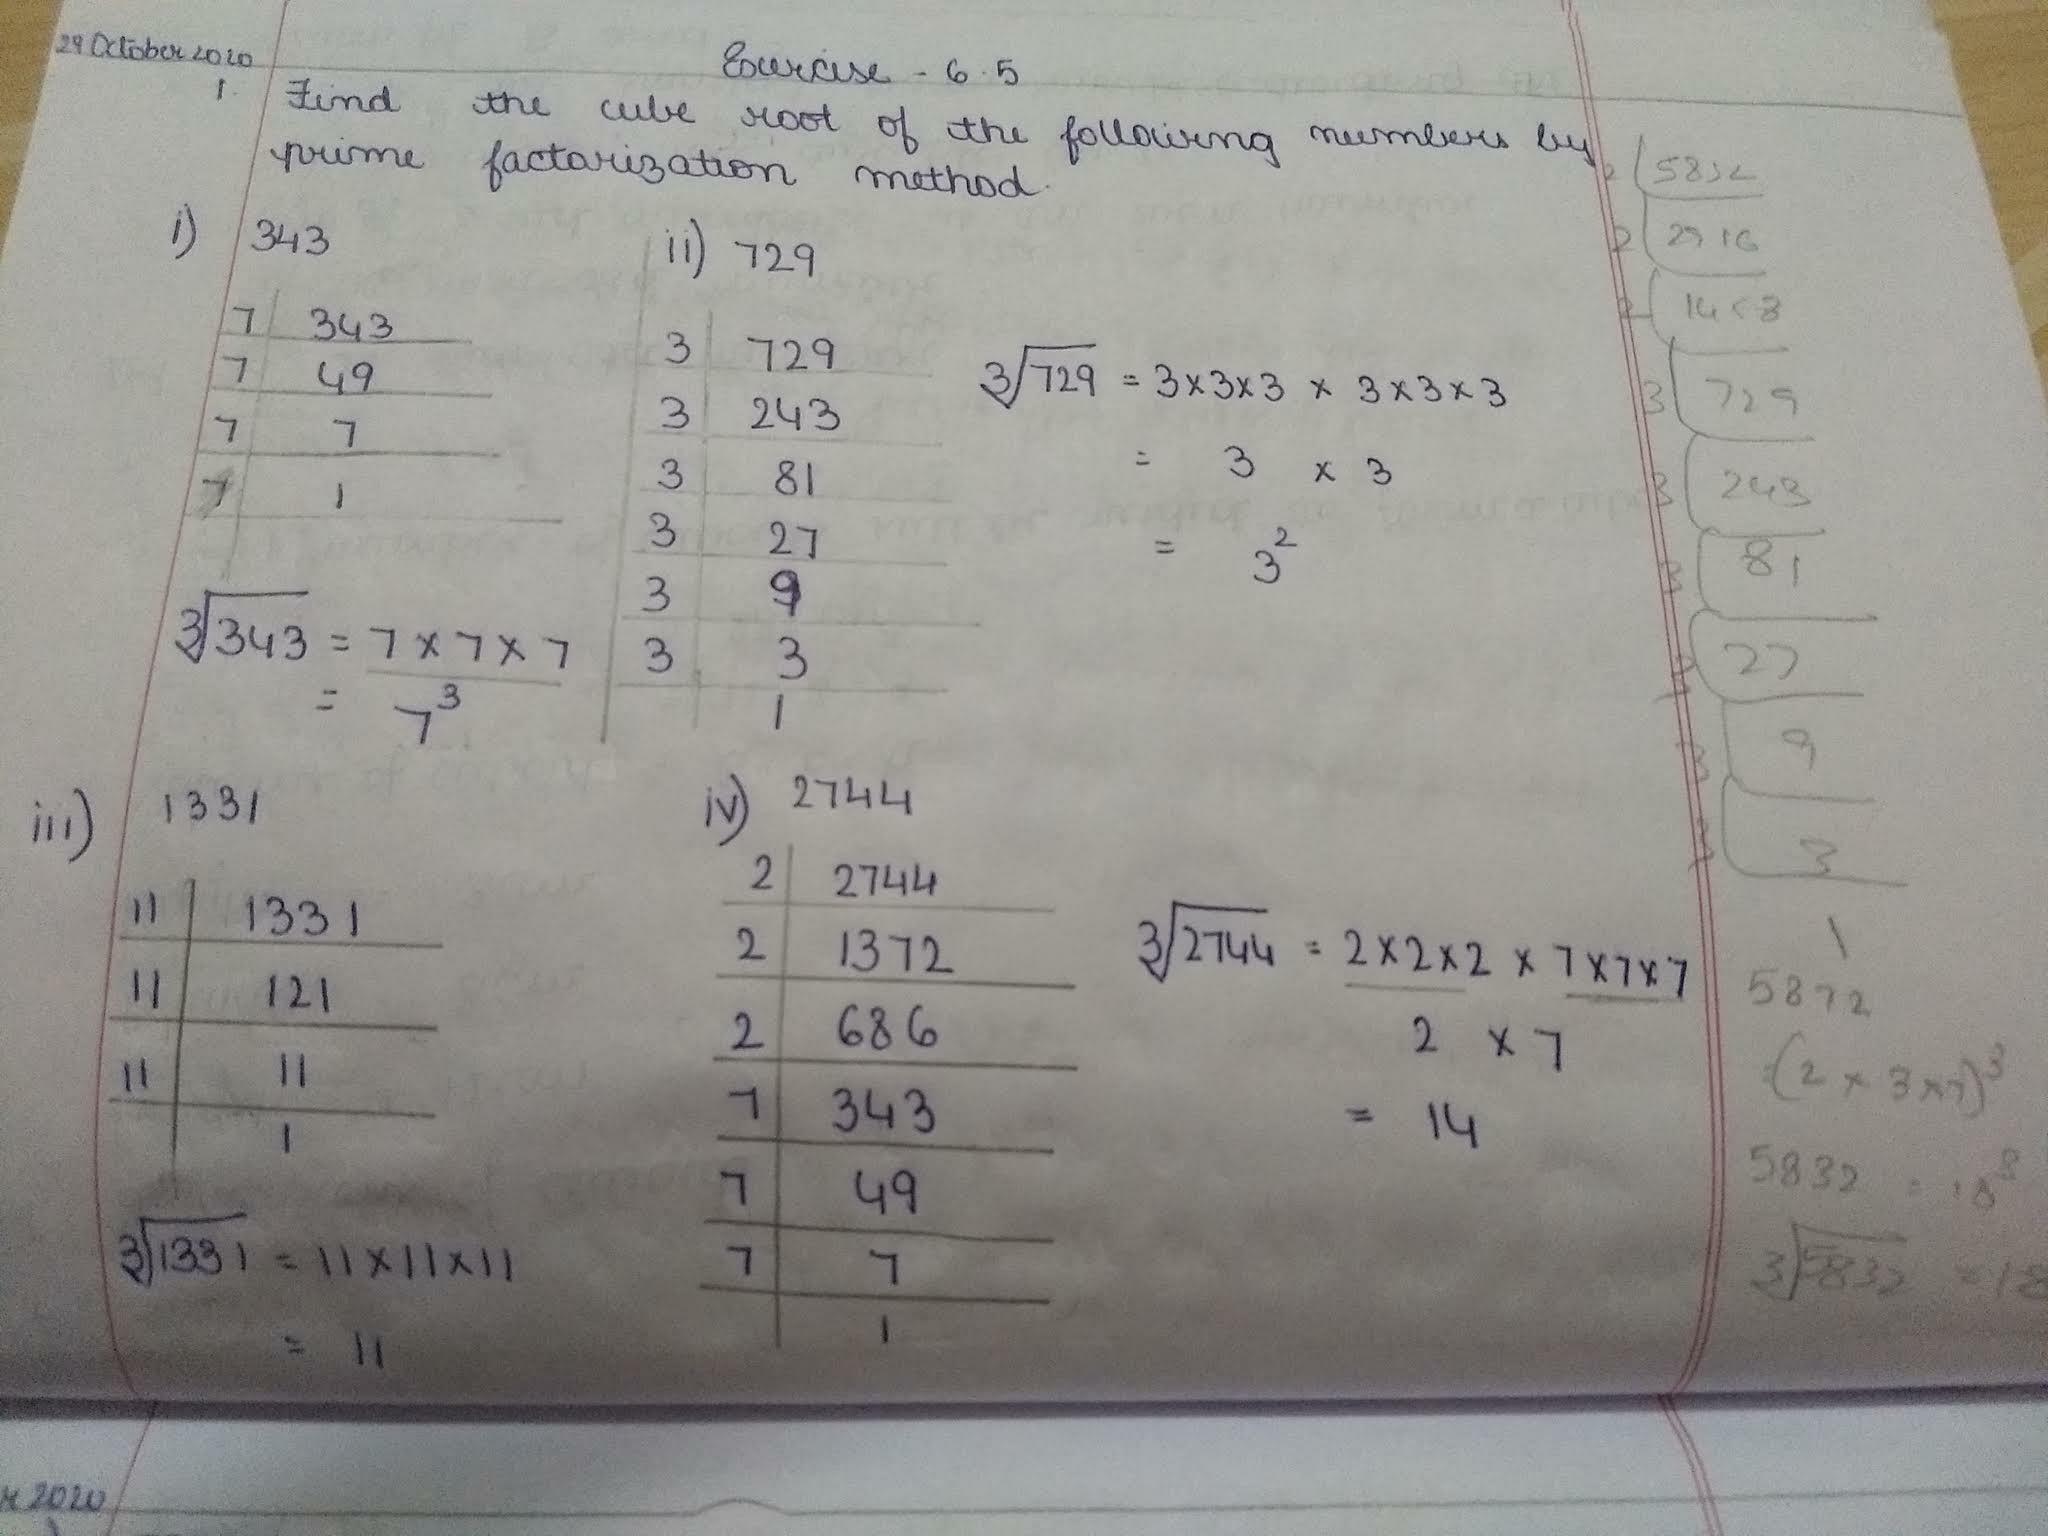 29 October 2020
Exercise - 6.5
1. Find the cube root of the following numbers by
prime factorization method.
i) 343
7 | 343
7 | 49
7 | 7
7 | 1
∛343 = 7 × 7 × 7
= 7³
ii) 729
3 | 729
3 | 243
3 | 81
3 | 27
3 | 9
3 | 3
1
∛729 = 3×3×3 × 3×3×3
= 3 × 3
= 3²
iii) 1331
11 | 1331
11 | 121
11 | 11
1
∛1331 = 11×11×11
= 11
iv) 2744
2 | 2744
2 | 1372
2 | 686
7 | 343
7 | 49
7 | 7
1
∛2744 = 2×2×2 × 7×7×7
2 × 7
= 14
2 | 5832
2 | 2916
2 | 1458
3 | 729
3 | 243
3 | 81
3 | 27
3 | 9
3 | 3
1
5872
5832 =
∛5832 = 18
2020